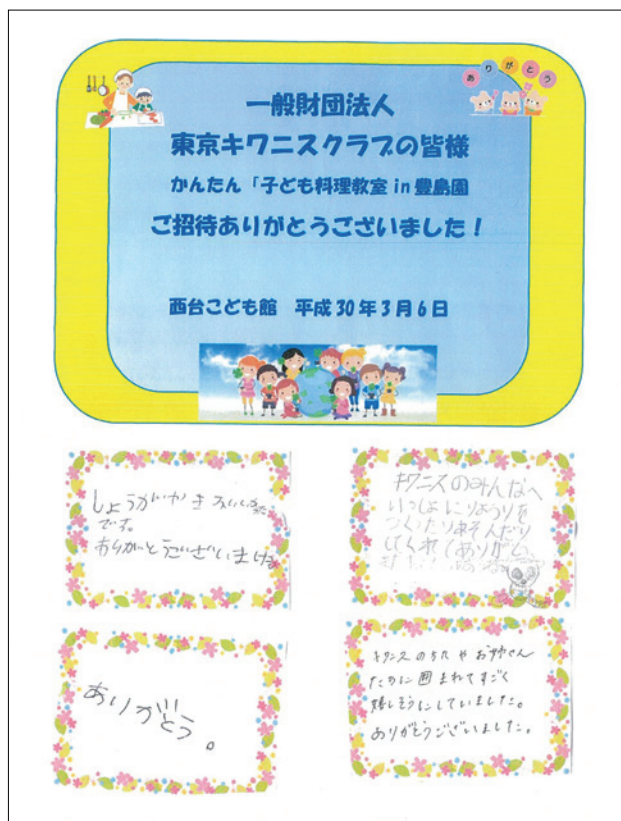 ありがとう
一般財団法人
東京キワニスクラブの皆様
かんたん「子ども料理教室 in 豊島園
ご招待ありがとうございました！
西台こども館 平成30年3月6日
しょうがやき おいしかった
です。
ありがとうございました
キワニスのみんなへ
いっしょにりょうりを
つくったりあそんだり
してくれてありがとう
ありがとう。
キワニスの方々やお姉さん
たちに囲まれてすごく
嬉しそうにしていました。
ありがとうございました。